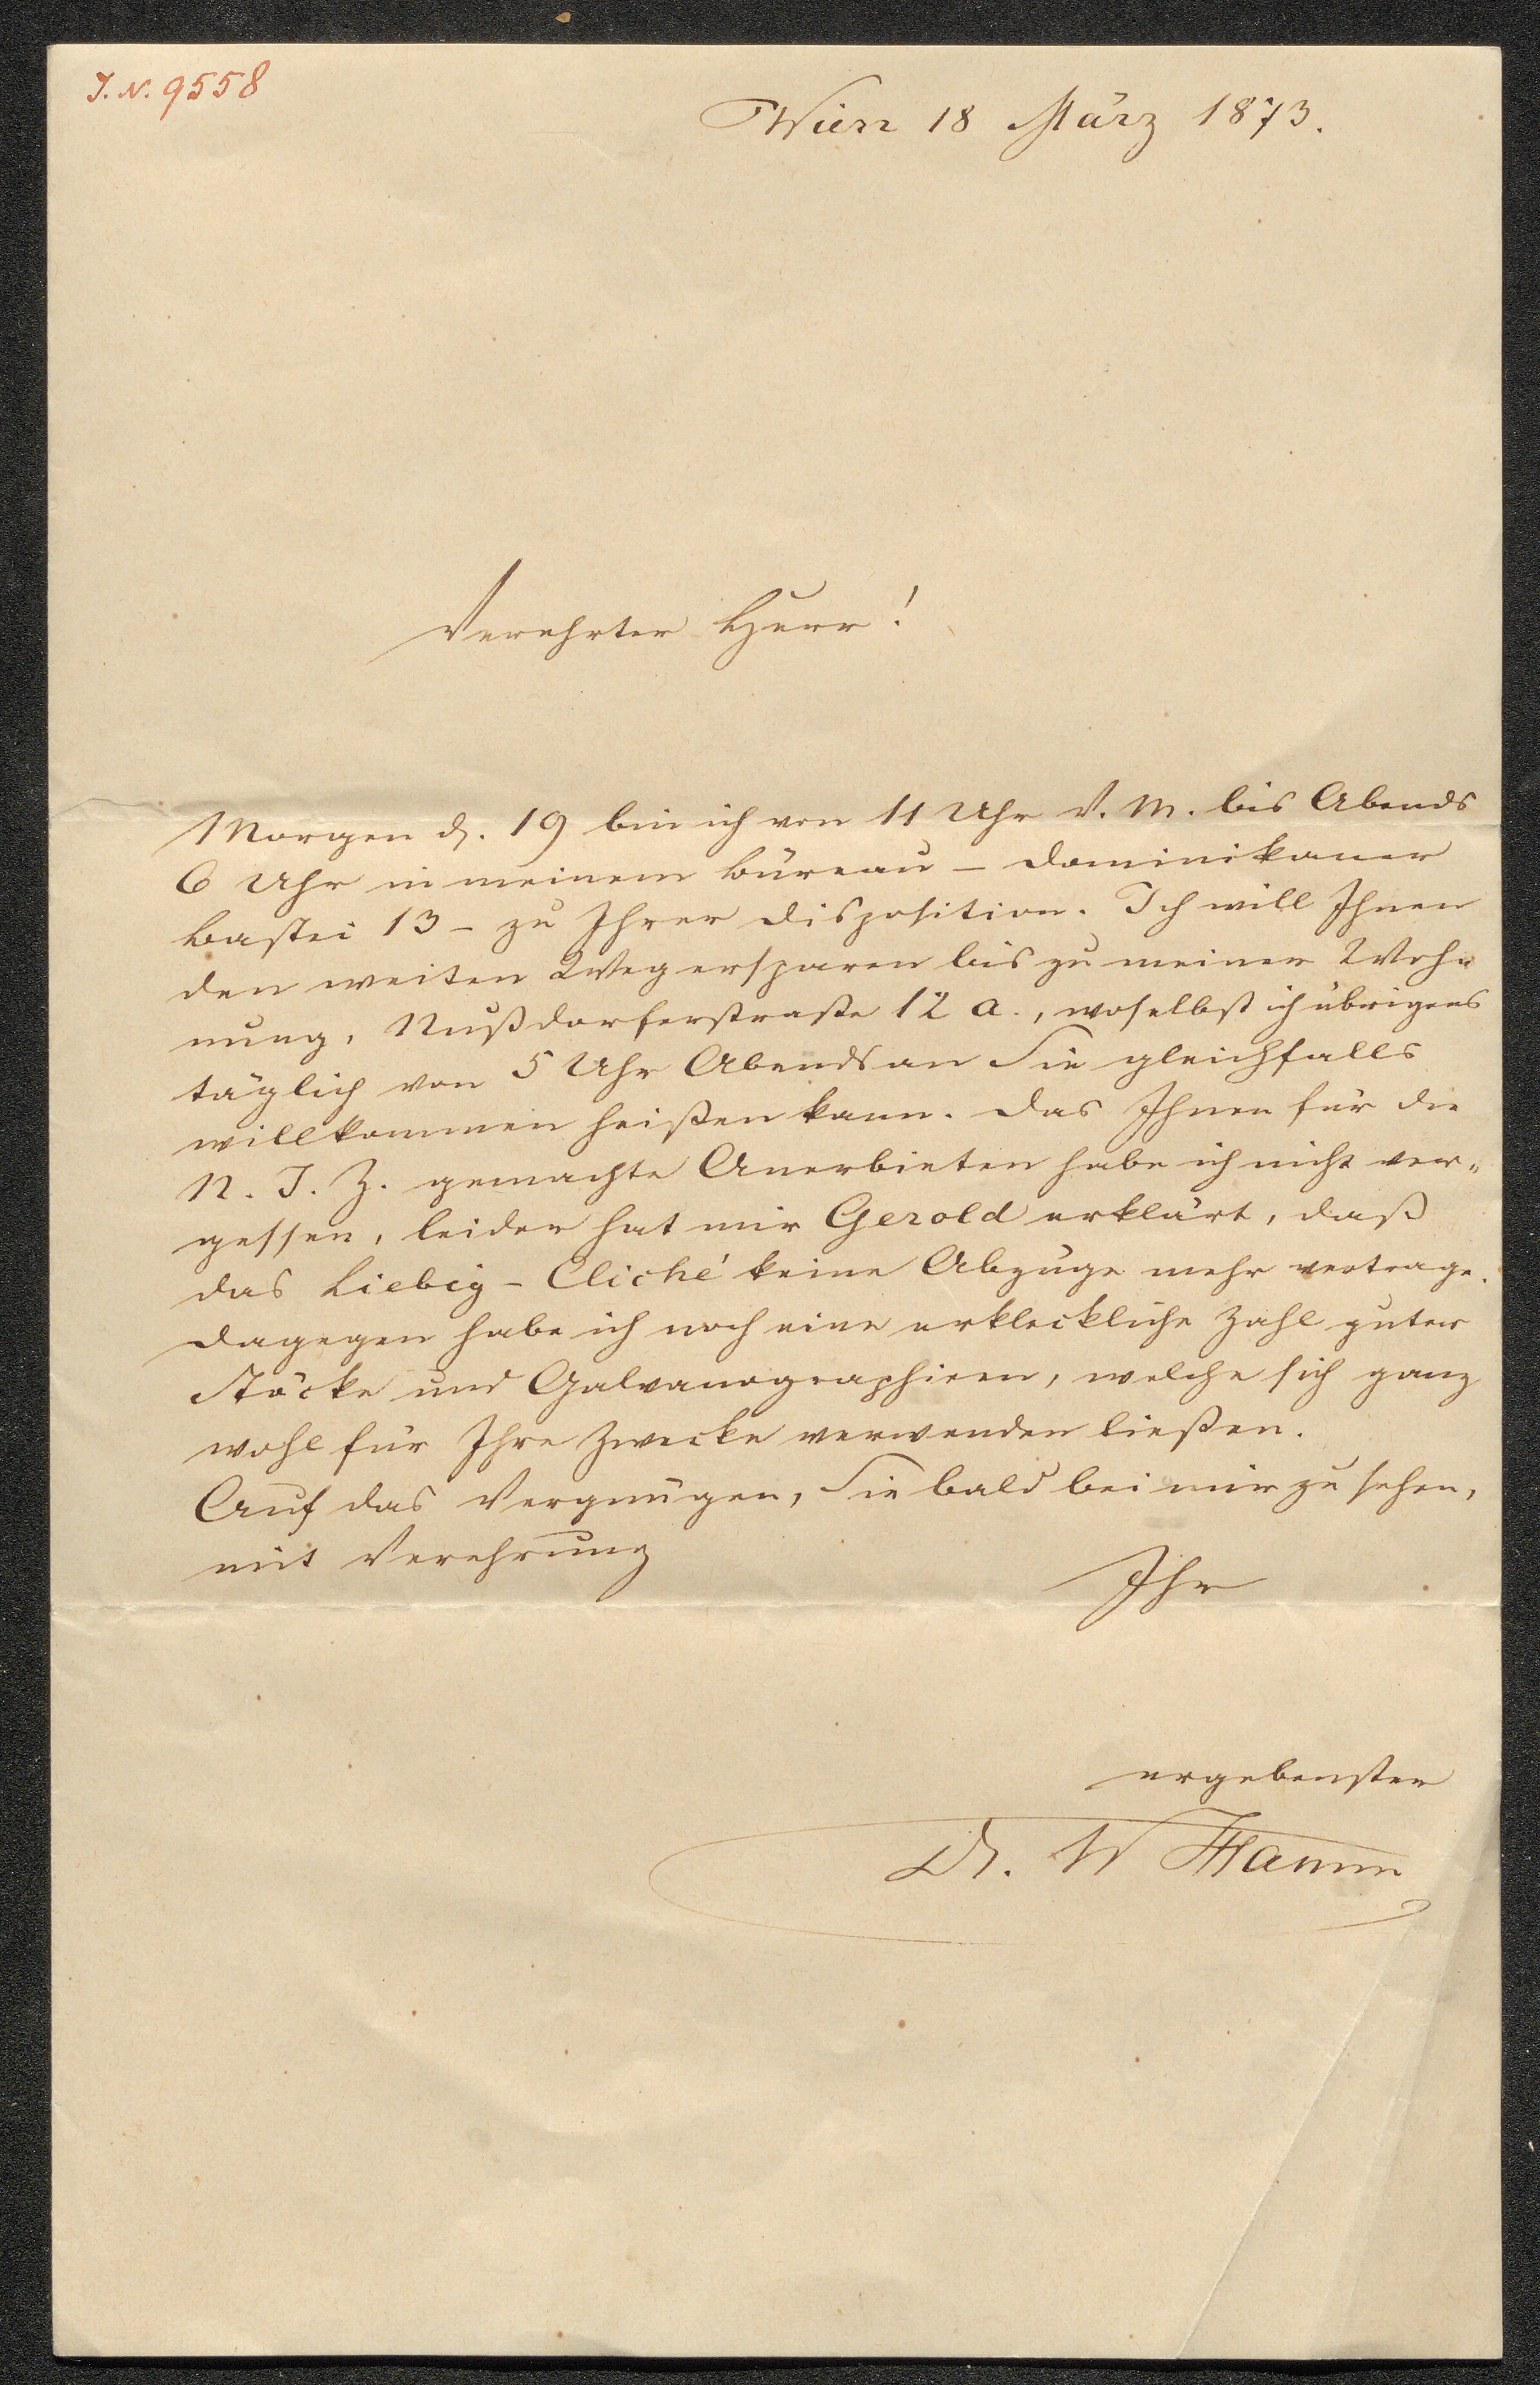 J. N. 9558
Wien 18 März 1873.
Verehrter Herr!
Morgen d. 19 bin ich von 11 Uhr V. M. bis Abends
6 Uhr in meinem Büreau – Dominikaner
Bastei 13 – zu Ihrer Disposition. Ich will Ihnen
den weiten Weg ersparen bis zu meiner Woh-
nung, Nußdorferstraße 12 a., woselbst ich übrigens
täglich von 5 Uhr Abends an Sie gleichfalls
willkommen heißen kann. Das Ihnen für die
N. I. Z. gemachte Anerbieten habe ich nicht ver-
gessen, leider hat mir Gerold erklärt, daß
das Liebig-Cliché keine Abzüge mehr vertrage.
Dagegen habe ich noch eine erkleckliche Zahl guter
Stöcke und Galvanographieen, welche sich ganz
wohl für Ihre Zwecke verwenden ließen.
Auf das Vergnügen, Sie bald bei mir zu sehen,
mit Verehrung
Ihr
ergebenster
Dr. W Hamm